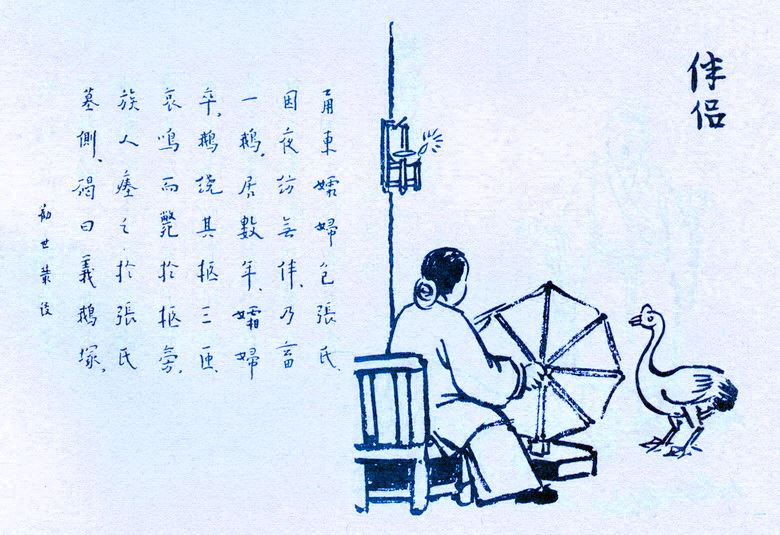 伴侣
甬東孀婦包張氏、
因夜紡無伴、乃畜
一鵝、居數年、孀婦
卒、鵝繞其柩三匝、
哀鳴而斃於柩旁、
族人瘞之於張氏
墓側、碣曰義鵝塚、
勸世叢談